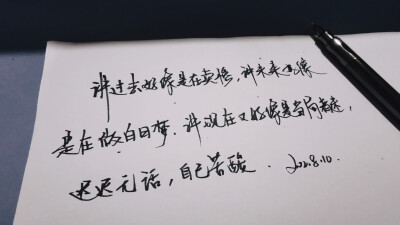 讲过去好像是在卖惨,讲未来像
是在做白日梦.讲现在又好像是当局者迷,
迟迟无话,自己苦酸. 8.10.